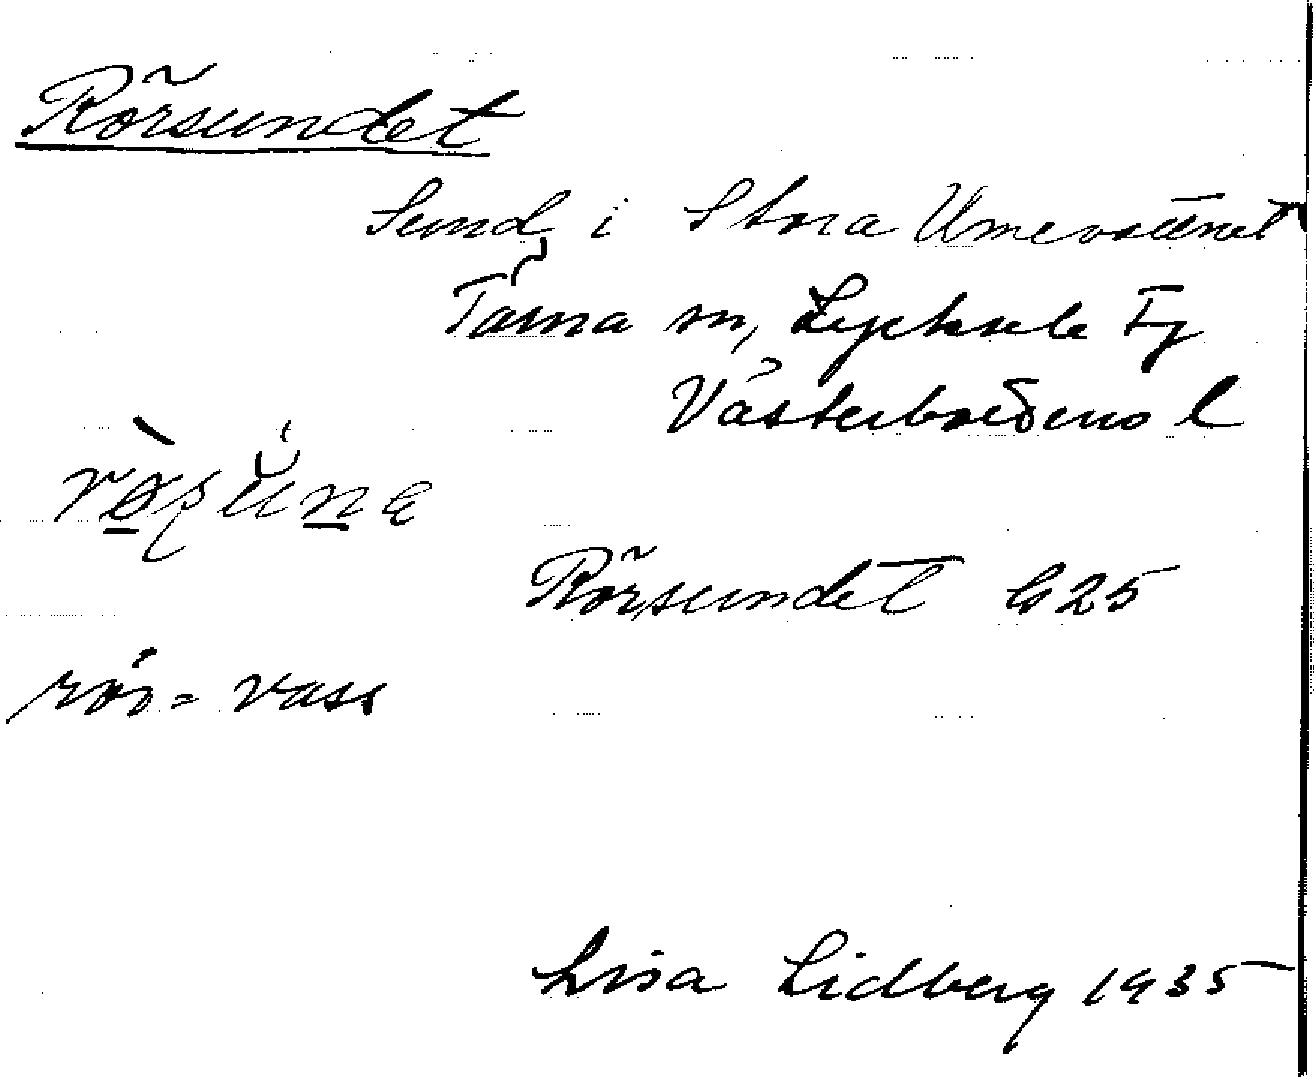 Rörsundet
Sund i Stora Umevattnet
Tärna sn, Lycksele Tg
Västerbottens l
Rörsundet G25
rör = vass
Lisa Lidberg 1935